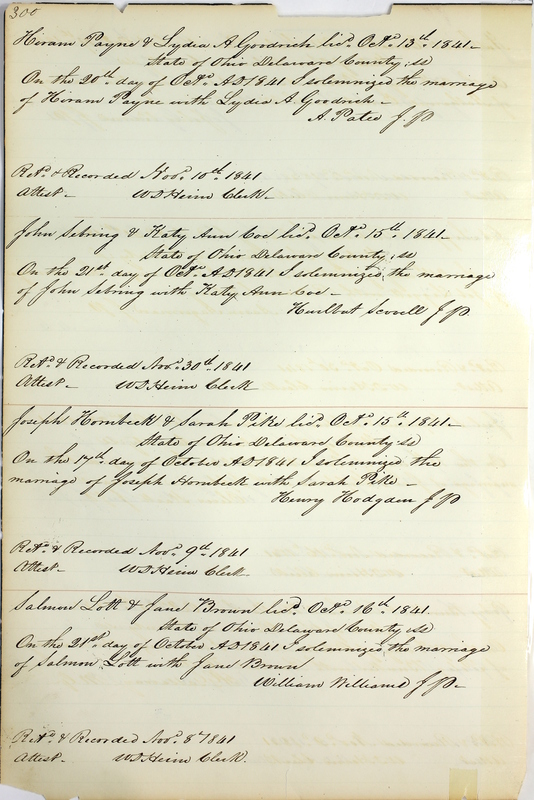 300
Hiram Payne & Lydia A Goodrich licd. Octr. 13th. 1841 -
State of Ohio Delaware County, ss
On the 20th. day of Octr. AD 1841 I solemnized the marriage
of Hiram Payne with Lydia A. Goodrich -
A. Patee J. P
Retd. & Recorded Novr. 10th. 1841
Attest - W D Heim Clerk -
John Sebring & Katy Ann Coe licd. Octr. 15th. 1841 -
State of Ohio Delaware County, ss
On the 21st. day of Octr. AD 1841 I solemnized the marriage
of John Sebring with Katy Ann Coe -
Hurlbut Scovell J P
Retd. & Recorded Novr. 30th. 1841
Attest - W D Heim Clerk
Joseph Hornbeck & Sarah Pike licd. Octr. 15th. 1841 -
State of Ohio Delaware County ss
On the 17th. day of October AD 1841 I solemnized the
marriage of Joseph Hornbeck with Sarah Pike -
Henry Hodgden J P
Retd. & Recorded Novr. 9th. 1841
Attest - W D Heim Clerk
Salmon Lott & Jane Brown licd. Octr. 16th. 1841.
State of Ohio Delaware County ss
On the 21st. day of October AD 1841 I solemnized the marriage
of Salmon Lott with Jane Brown
William Williams J. P. -
Retd. & Recorded Novr. 8th 1841
Attest - W D Heim Clerk.